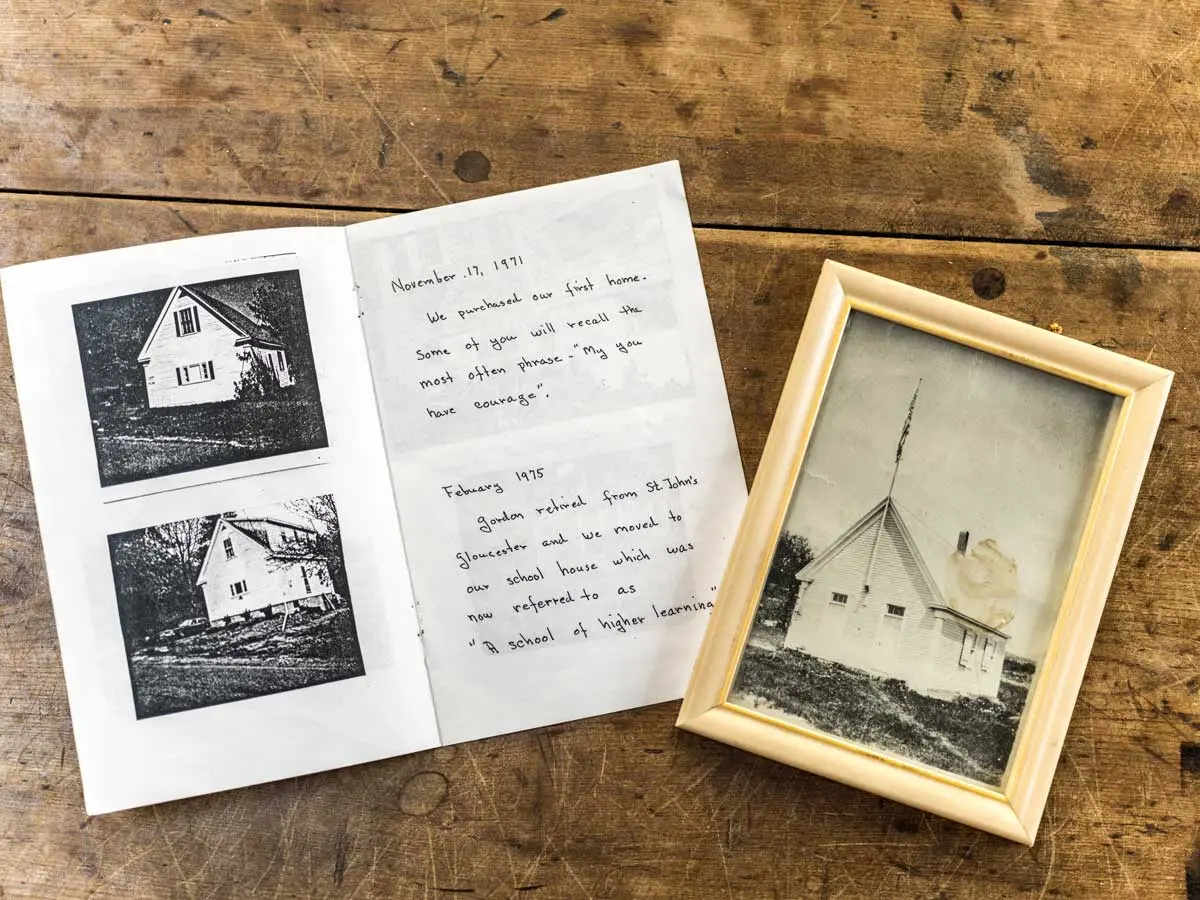 November .17, 1971
We purchased our first home.
Some of you will recall the
most often phrase - "My you
have courage".
Febuary 1975
Gordon retired from St. John's
Gloucester and we moved to
our school house which was
now referred to as
"A school of higher learning"